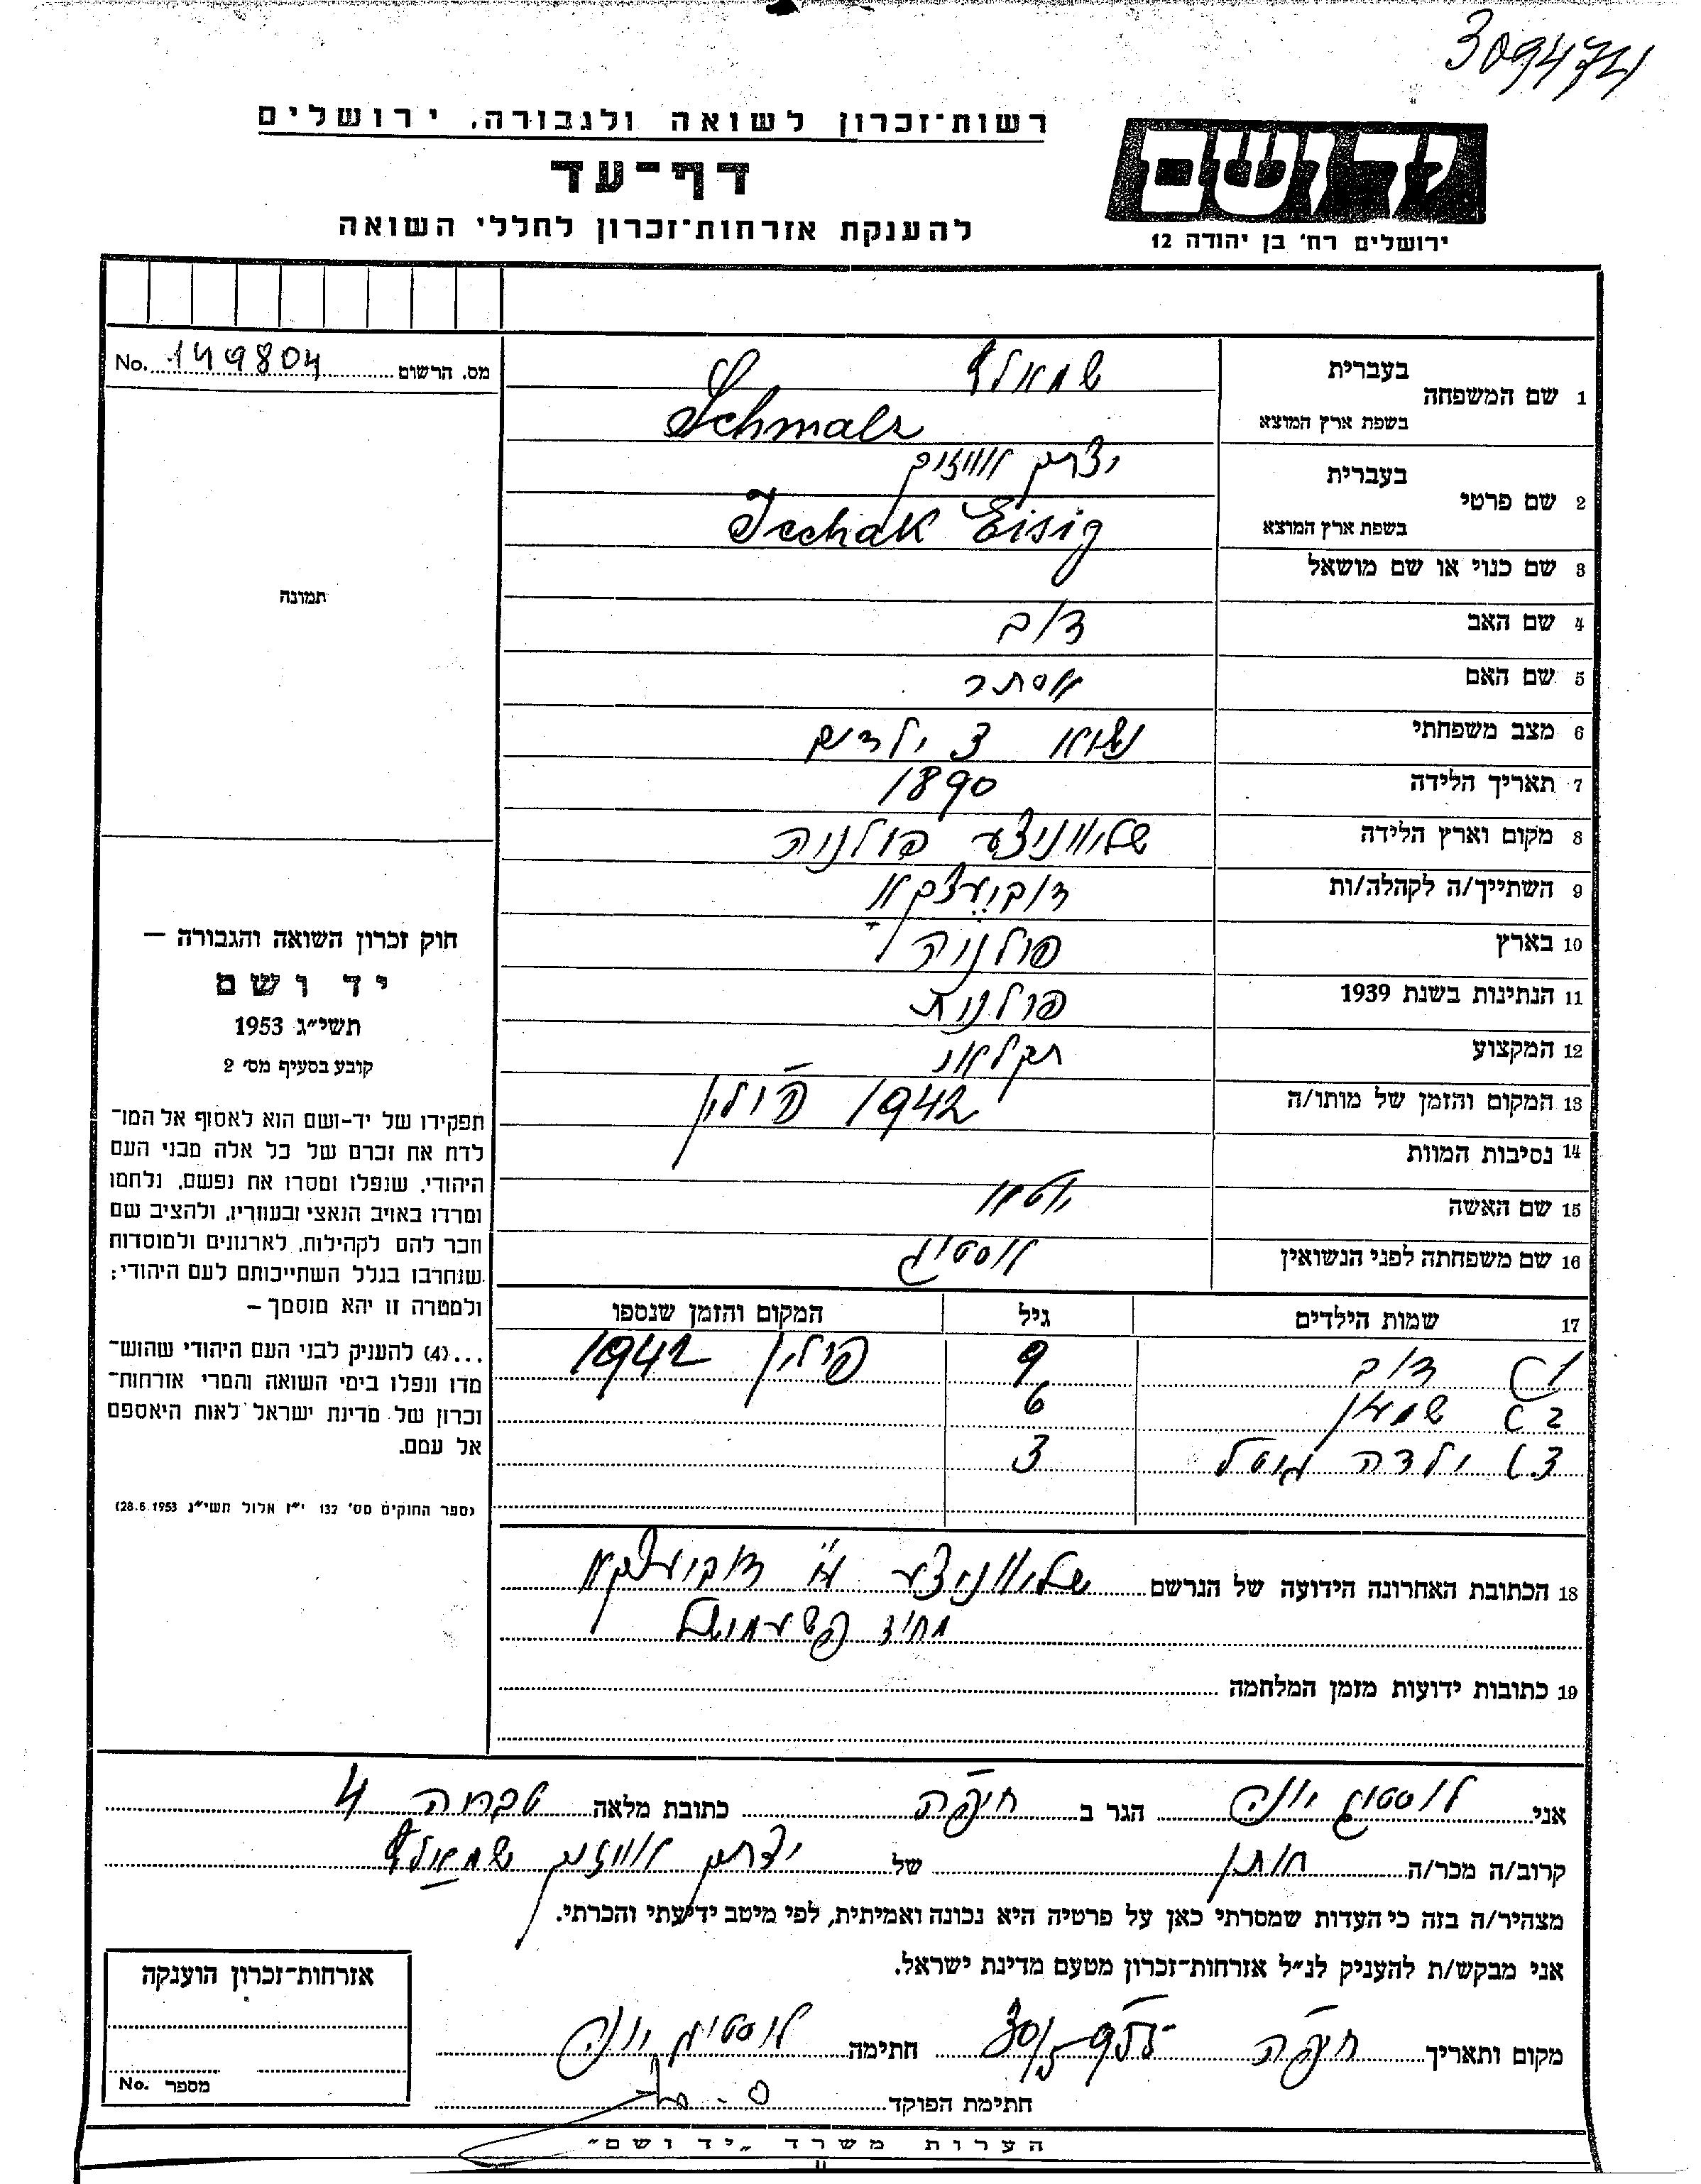 3094741
רשות־זכרון לשואה ולגבורה, ירושלים
דף־עד
להענקת אזרחות־זכרון לחללי השואה
ידושם
ירושלים רח' בן יהודה 12
מס. הרשום 149804 No.
1 שם המשפחה בעברית שמאלץ
בשפת ארץ המוצא Schmalz
2 שם פרטי בעברית יצחק אייזיק
בשפת ארץ המוצא Icchak Eisig
3 שם כנוי או שם מושאל
4 שם האב דוב
5 שם האם אסתר
6 מצב משפחתי נשוא 3 ילדים
7 תאריך הלידה 1890
8 מקום וארץ הלידה פולניה
9 השתייך/ה לקהלה/ות
10 בארץ פולניה
11 הנתינות בשנת 1939 פולנית
12 המקצוע חקלאי
13 המקום והזמן של מותו/ה 1942
14 נסיבות המוות
15 שם האשה
16 שם משפחתה לפני הנשואין לוסטיג
17 שמות הילדים גיל המקום והזמן שנספו
1) דוב 9 1942
2) שמעון 6
3) ילדה 3
18 הכתובת האחרונה הידועה של הנרשם
מחוז
19 כתובות ידועות מזמן המלחמה
תמונה
חוק זכרון השואה והגבורה –
יד ושם
תשי״ג 1953
קובע בסעיף מס׳ 2
תפקידו של יד-ושם הוא לאסוף אל המו־
לדת את זכרם של כל אלה מבני העם
היהודי, שנפלו ומסרו את נפשם, נלחמו
ומרדו באויב הנאצי ובעוזריו, ולהציב שם
וזכר להם לקהילות, לארגונים ולמוסדות
שנחרבו בגלל השתייכותם לעם היהודי;
ולמטרה זו יהא מוסמך –
...(4) להעניק לבני העם היהודי שהוש־
מדו ונפלו בימי השואה והמרי אזרחות־
זכרון של מדינת ישראל לאות היאספם
אל עמם.
(ספר החוקים מס׳ 132 י״ז אלול תשי״ג 28.8.1953)
אני לוסטיג יונה הגר ב חיפה כתובת מלאה טבריה 4
קרוב/ה מכר/ה חותן של יצחק אייזיק שמאלץ
מצהיר/ה בזה כי העדות שמסרתי כאן על פרטיה היא נכונה ואמיתית, לפי מיטב ידיעתי והכרתי.
אני מבקש/ת להעניק לנ״ל אזרחות־זכרון מטעם מדינת ישראל.
מקום ותאריך חיפה 30/5-955 חתימה לוסטיג יונה
חתימת הפוקד
אזרחות־זכרון הוענקה
מספר No.
הערות משרד „יד ושם״